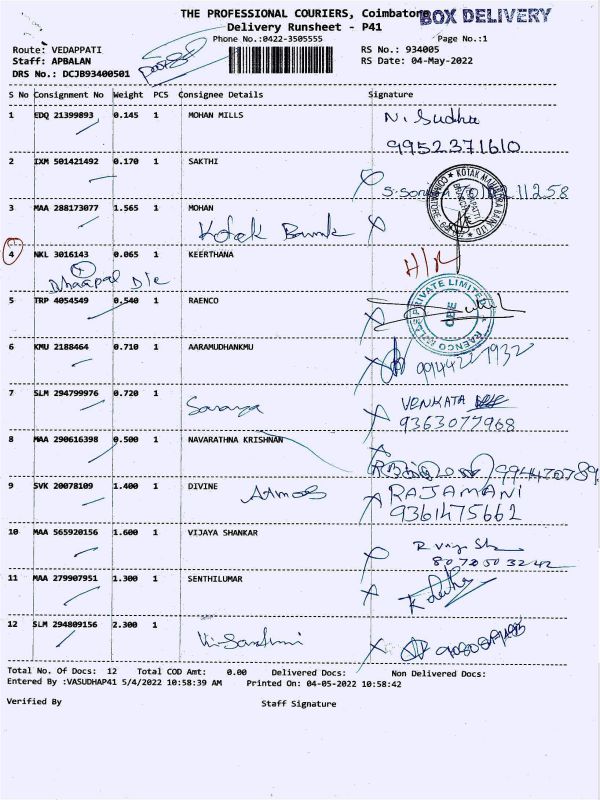 THE PROFESSIONAL COURIERS, Coimbatore
BOX DELIVERY
Delivery Runsheet - P41
Phone No.:0422-3505555
Page No.:1
Route: VEDAPPATI
RS No.: 934005
Staff: APBALAN
RS Date: 04-May-2022
DRS No.: DCJB93400501
S No Consignment No Weight PCS Consignee Details Signature
1 EDQ 21399893 0.145 1 MOHAN MILLS N. Sudha
9952371610
2 IXM 501421492 0.170 1 SAKTHI
11258
3 MAA 288173077 1.565 1 MOHAN
Kotak Bank
4 NKL 3016143 0.065 1 KEERTHANA
5 TRP 4054549 0.540 1 RAENCO
RAENCO MILLS PRIVATE LIMITED
CBE
6 KMU 2188464 0.710 1 AARAMUDHANKMU
7 SLM 294799976 0.720 1 Saranya VENKATA
9363077968
8 MAA 290616398 0.500 1 NAVARATHNA KRISHNAN
9 SVK 20078109 1.400 1 DIVINE RAJAMANI
9361475661
10 MAA 565920156 1.600 1 VIJAYA SHANKAR
8072503242
11 MAA 279907951 1.300 1 SENTHILUMAR
12 SLM 294809156 2.300 1
Total No. Of Docs: 12 Total COD Amt: 0.00 Delivered Docs: Non Delivered Docs:
Entered By :VASUDHAP41 5/4/2022 10:58:39 AM Printed On: 04-05-2022 10:58:42
Verified By Staff Signature